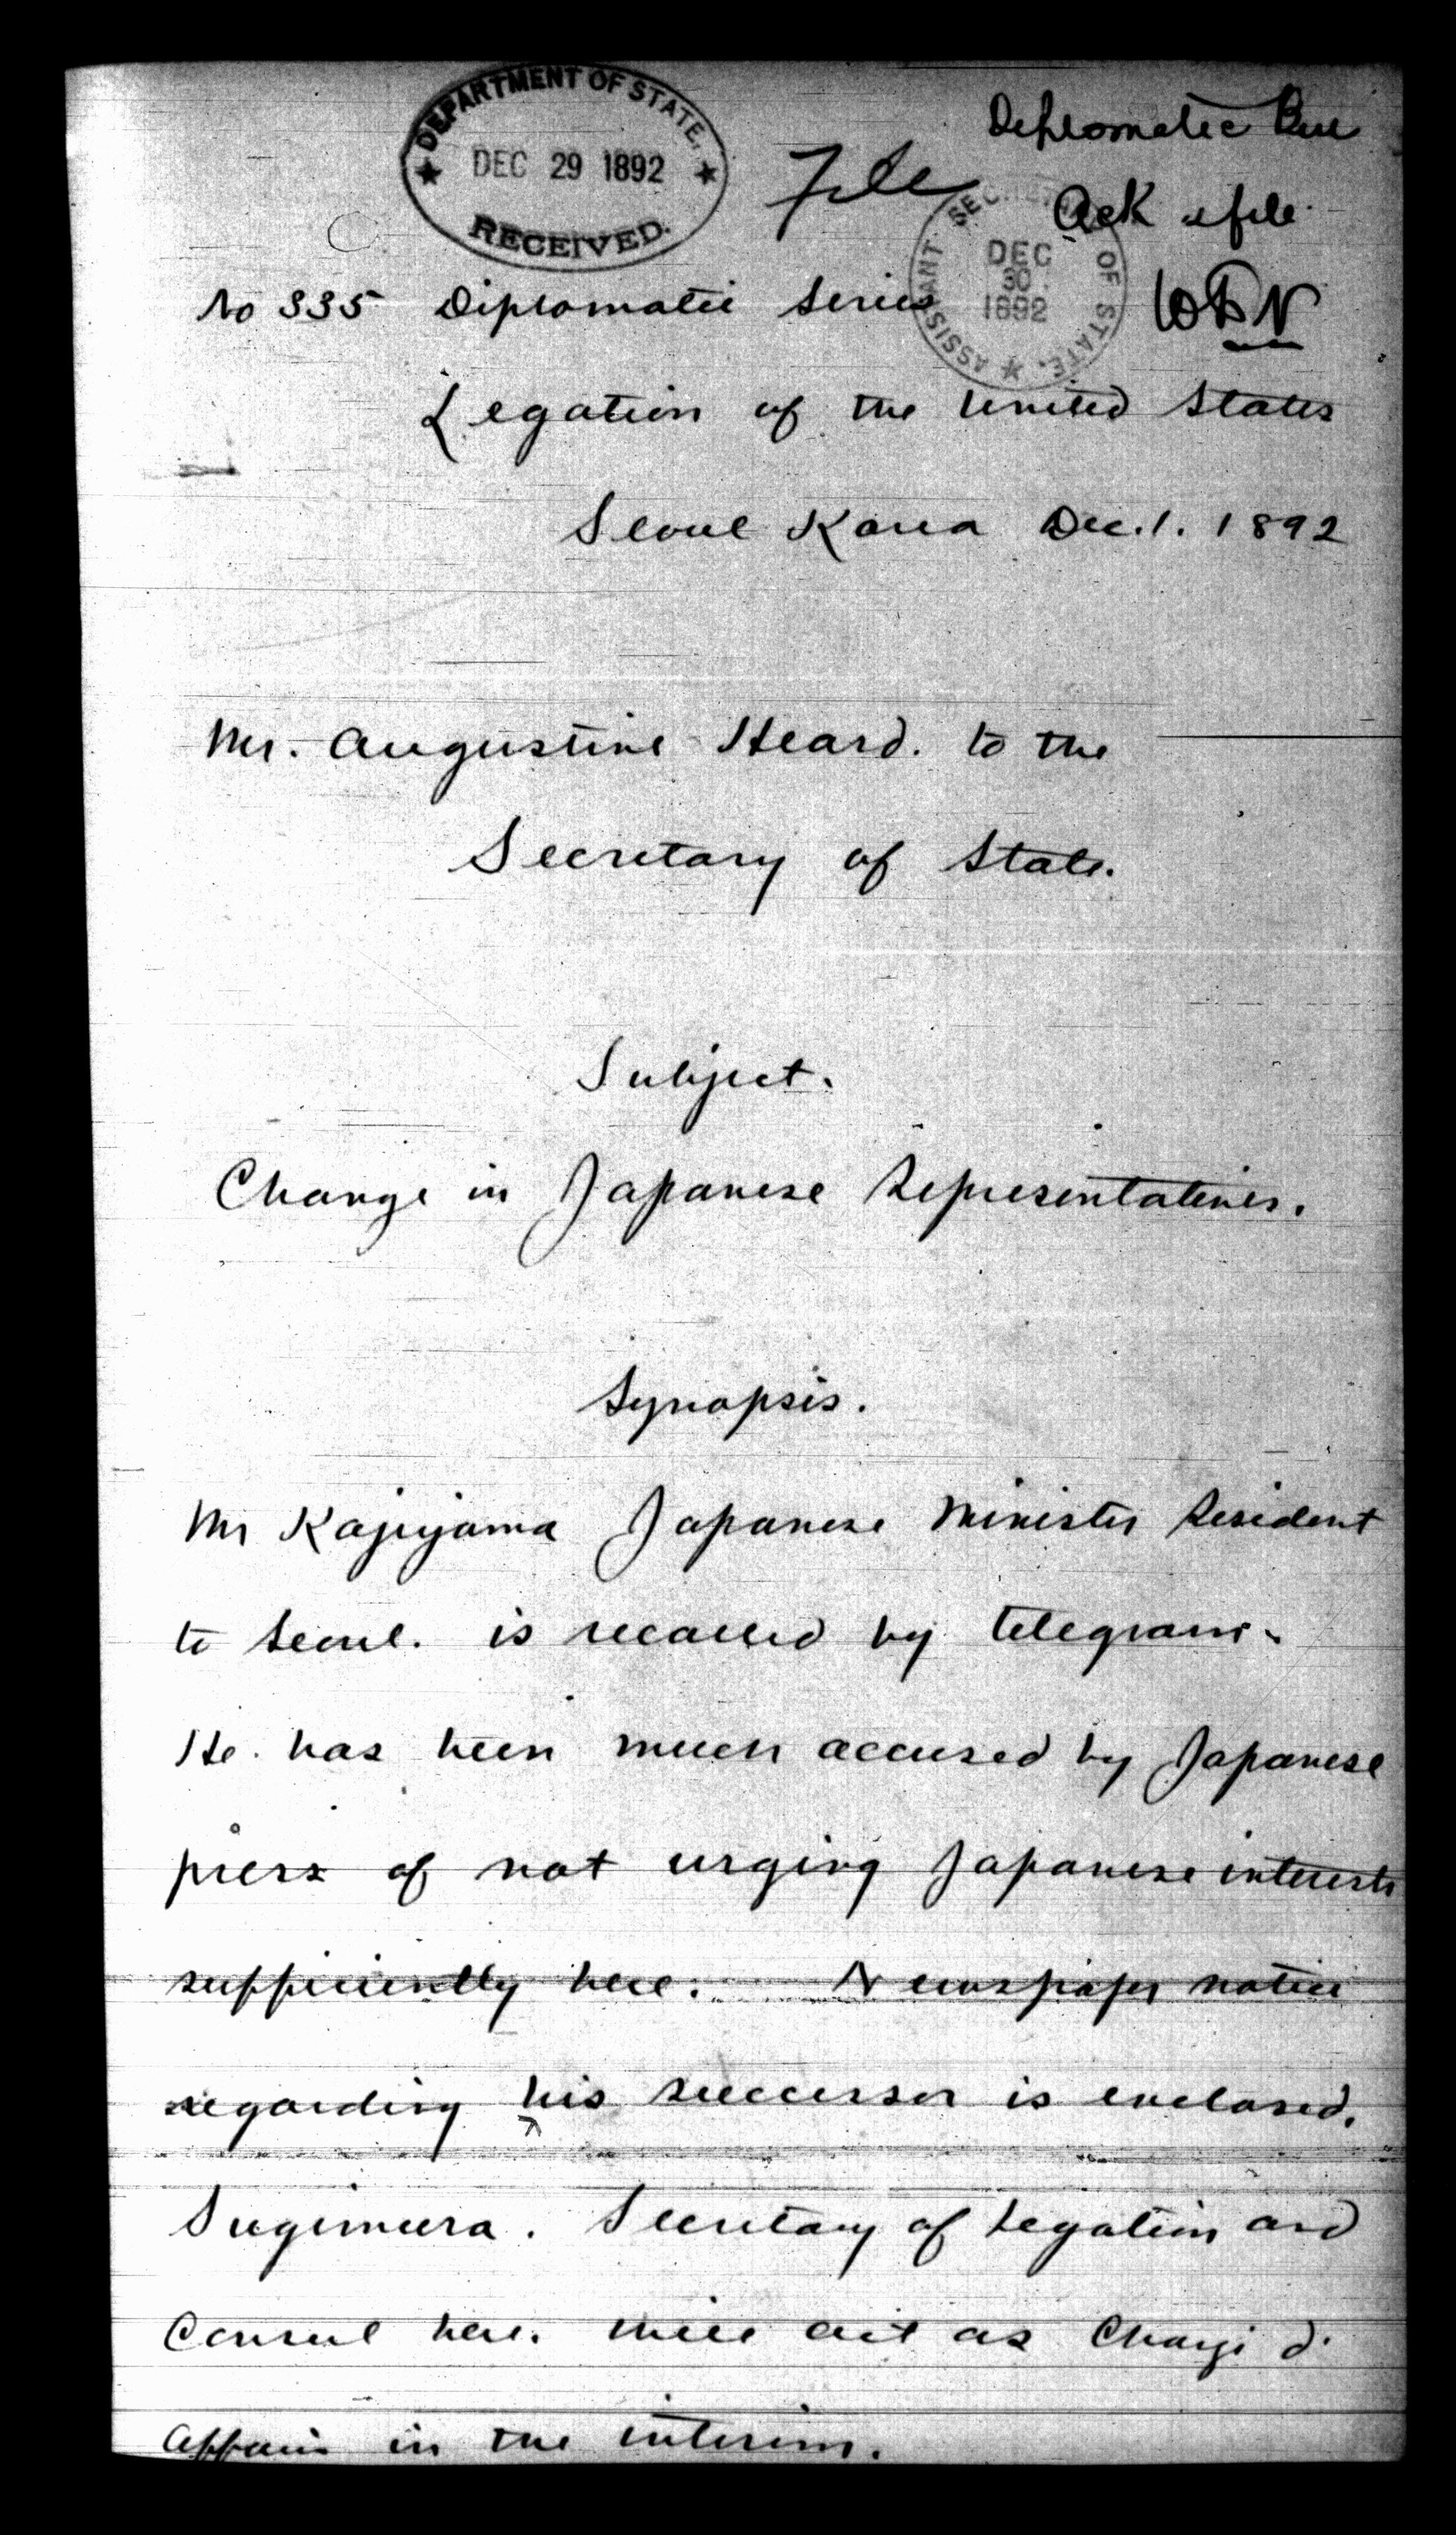 DEPARTMENT OF STATE.
DEC 29 1892
RECEIVED.
Diplomatic Bu
File
Ack & file
ASSISTANT SECRETARY OF STATE.
DEC
30
1892
No 335 Diplomatic Series
Legation of the United States
Seoul Korea Dec. 1. 1892
Mr. Augustine Heard. to the
Secretary of State.
Subject.
Change in Japanese Representatives.
Synopsis.
Mr Kajiyama Japanese Minister Resident
to Seoul. is recalled by telegram.
He has been much accused by Japanese
press of not urging Japanese interests
sufficiently here. Newspaper notice
regarding his successor is enclosed.
Sugimura. Secretary of Legation and
Consul here. will act as Chargé d'
Affairs in the interim.